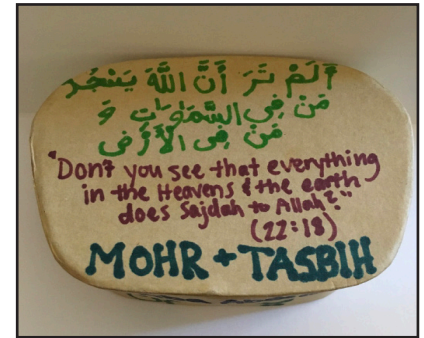 أَلَمْ تَرَ أَنَّ اللَّهَ يَسْجُدُ
مَنْ فِي السَّمَٰوَٰتِ وَ
مَنْ فِى الْأَرْضِ
"Don't you see that everything
in the Heavens & the earth
does Sajdah to Allah?"
(22:18)
MOHR + TASBIH